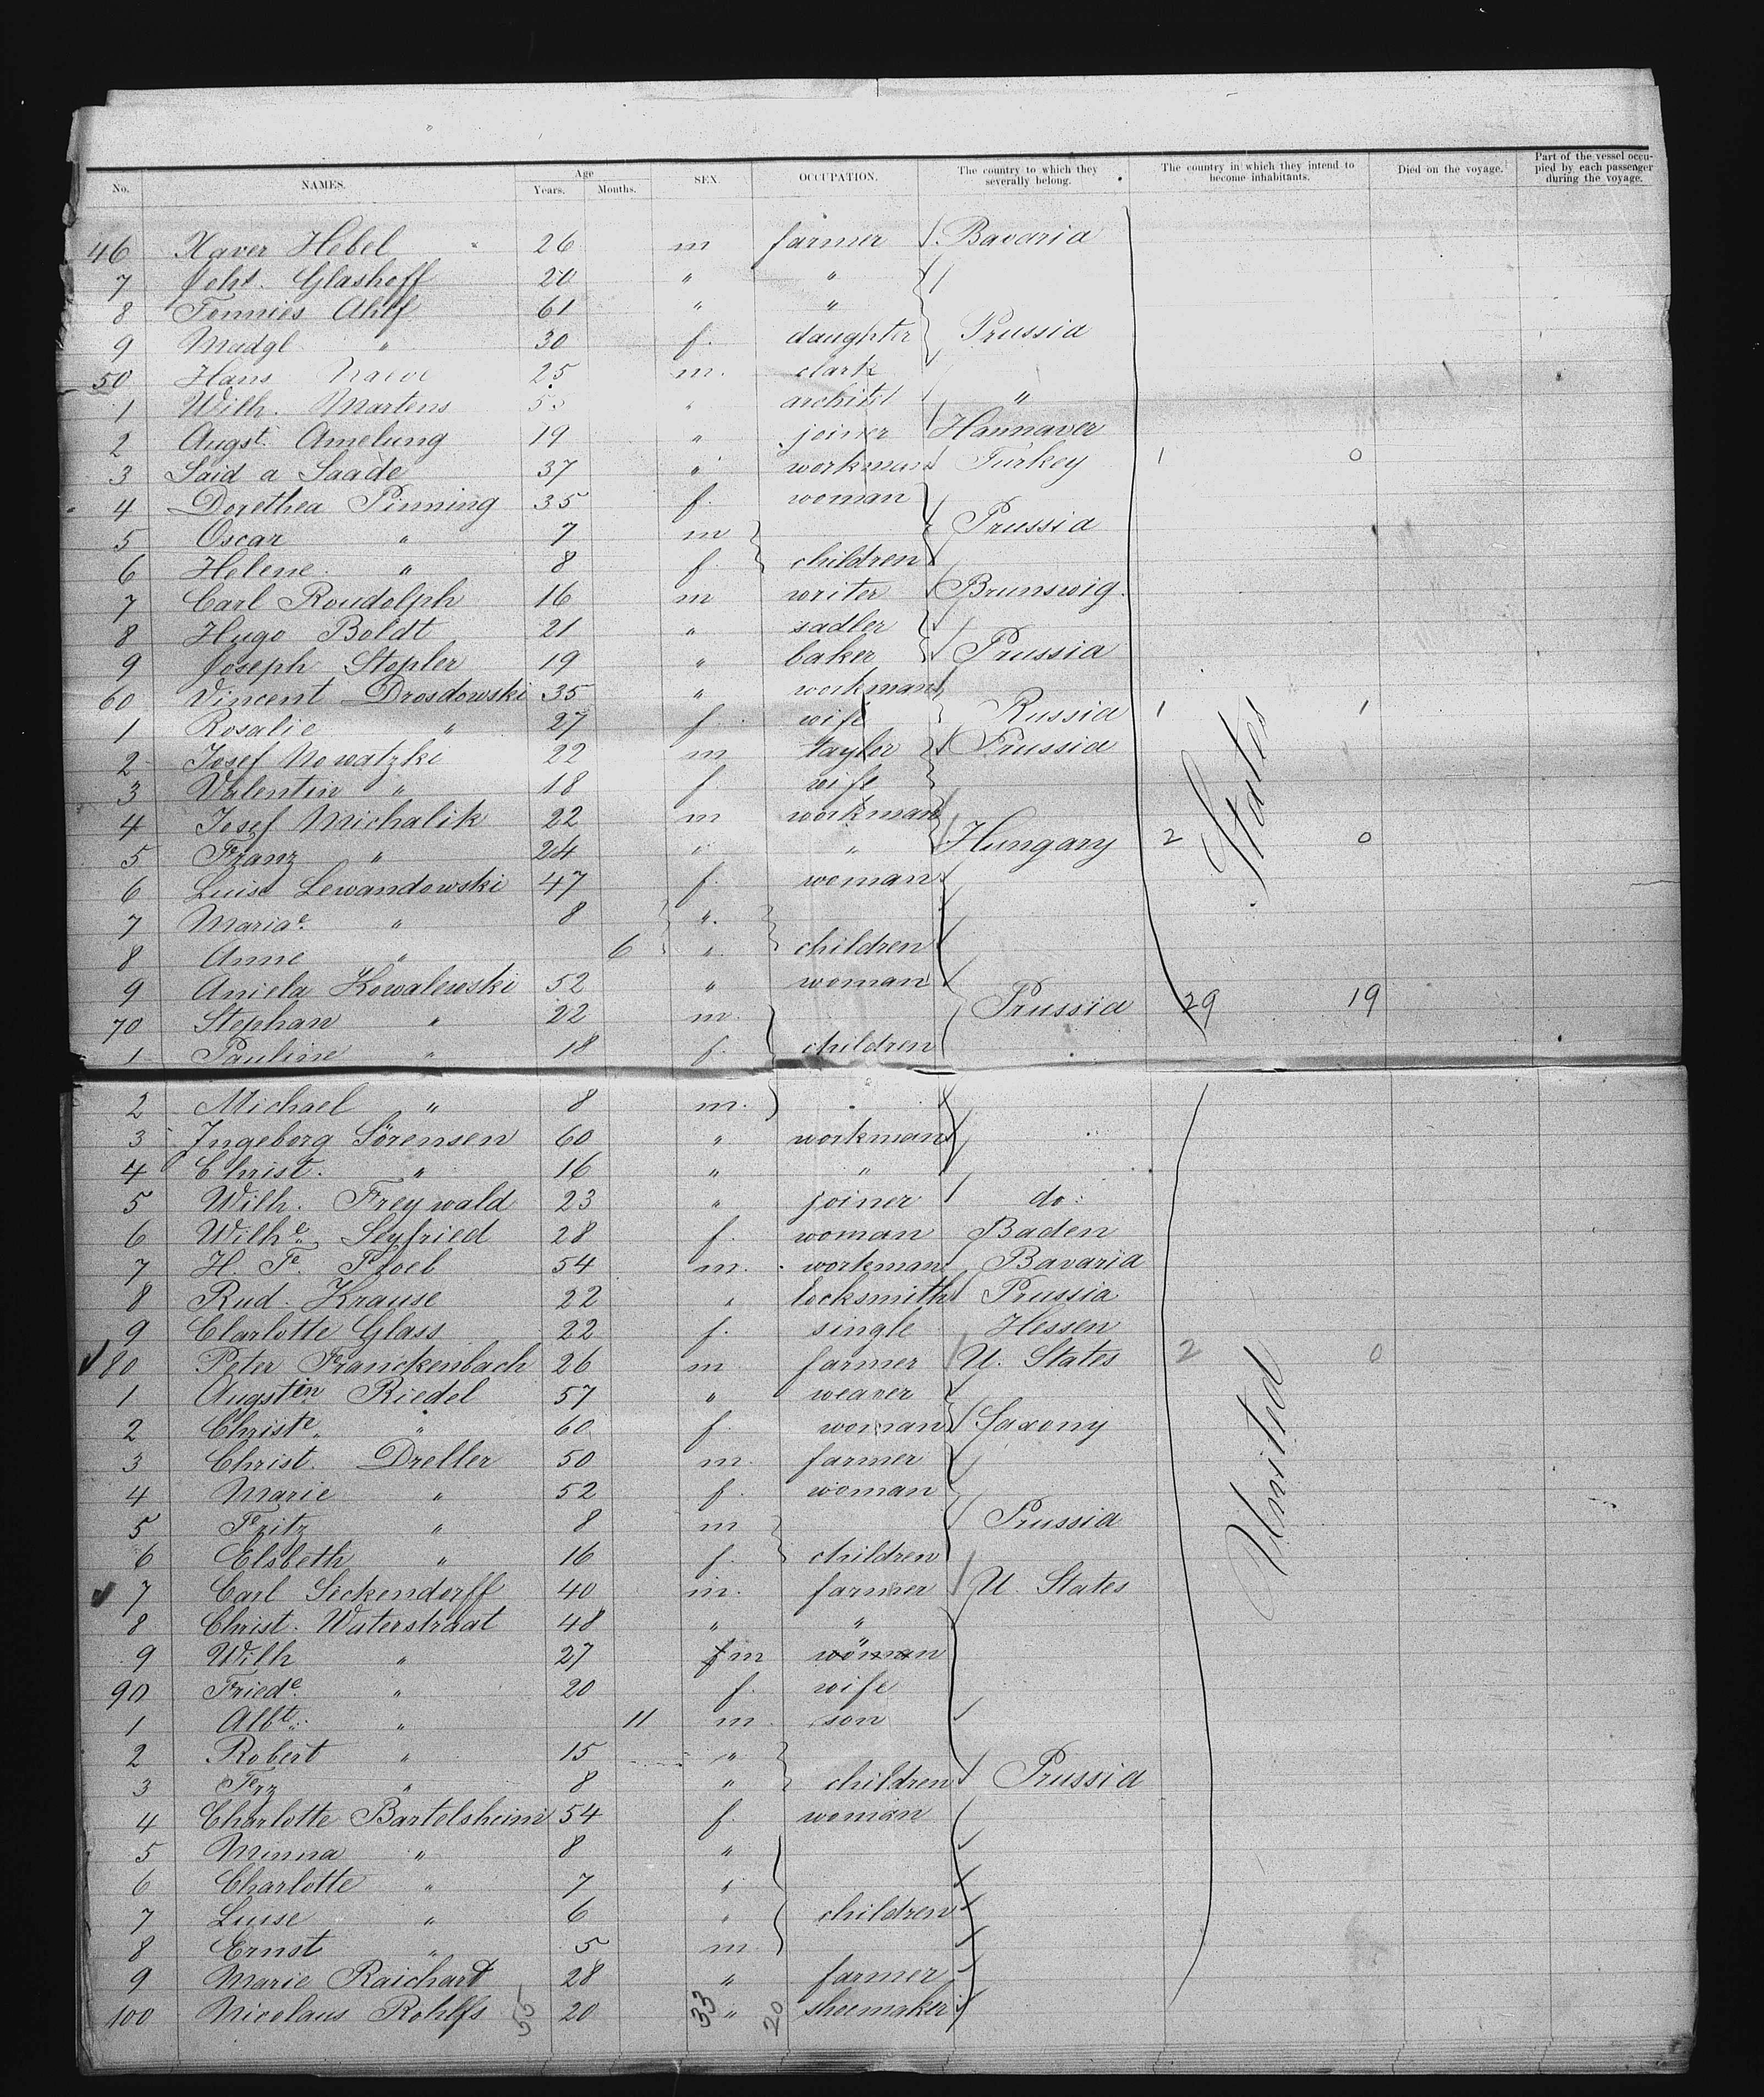 No. NAMES. Age Years. Months. SEX. OCCUPATION. The country to which they severally belong. The country in which they intend to become inhabitants. Died on the voyage. Part of the vessel occupied by each passenger during the voyage.
46 Xaver Hebel 26 m farmer Bavaria
7 Joht. Glashoff 20 " "
8 Tonnies Ahlf 61 " "
9 Madgl " 30 f. daughter Prussia
50 Hans 25 m. clark
1 Wilh. Martens " architct "
2 Augst. Amelung 19 " joiner Hannaver
3 Said a Saade 37 " workman Turkey 1 0
4 Dorethea Pinning 35 f. woman
5 Oscar " 7 m Prussia
6 Helene " 8 f. children
7 Carl Roudolph 16 m writer Brunswig.
8 Hugo Boldt 21 " sadler
9 Joseph Stopler 19 " baker Prussia
60 Vincent Drosdowski 35 " workman
1 Rosalie " 27 f. wife Russia 1 1
2 Josef Nowatzki 22 m taylor Prussia
3 Valentin " 18 f. wife
4 Josef Michalik 22 m workman
5 Franz " 24 " " Hungary 2 0
6 Luise Lewandowski 47 f. woman
7 Mariae " 8 "
8 Anne " 6 " children
9 Aniela Kowalewski 52 " woman
70 Stephan " 22 m. Prussia 29 19
1 Pauline " 18 f. children
2 Michael " 8 m.
3 Ingeborg Sörensen 60 " workman
4 Christ. " 16 " "
5 Wilh. Freywald 23 " joiner do.
6 Wilhe. Seyfried 28 f. woman Baden
7 H. Fe. Ploeb 54 m. workman Bavaria
8 Rud. Krause 22 " locksmith Prussia
9 Clarlotte Glass 22 f. single Hessen
80 Peter Franckenbach 26 m farmer U. States 2 0
1 Augstin. Riedel 57 " weaver
2 Christe. " 60 f. woman Saxony
3 Christ. Dreller 50 m. farmer
4 Marie " 52 f. woman
5 Fritz " 8 m Prussia
6 Elsbeth " 16 f. children
7 Carl Seckendorff 40 m. farmer U. States
8 Christ. Waterstraat 48 " "
9 Wilh " 27 f m woman "
90 Friede. " 20 f. wife
1 Albt. " 11 m. son
2 Robert " 15 "
3 " 8 " children Prussia
4 Charlotte Bartelsheim 54 f. woman
5 Minna " 8 "
6 Charlotte " 7 "
7 Luise " 6 " children
8 Ernst " 5 m.
9 Marie Raichart 28 " farmer
100 Nicolaus Rohlfs 55 20 33 " 20 shoemaker
United States